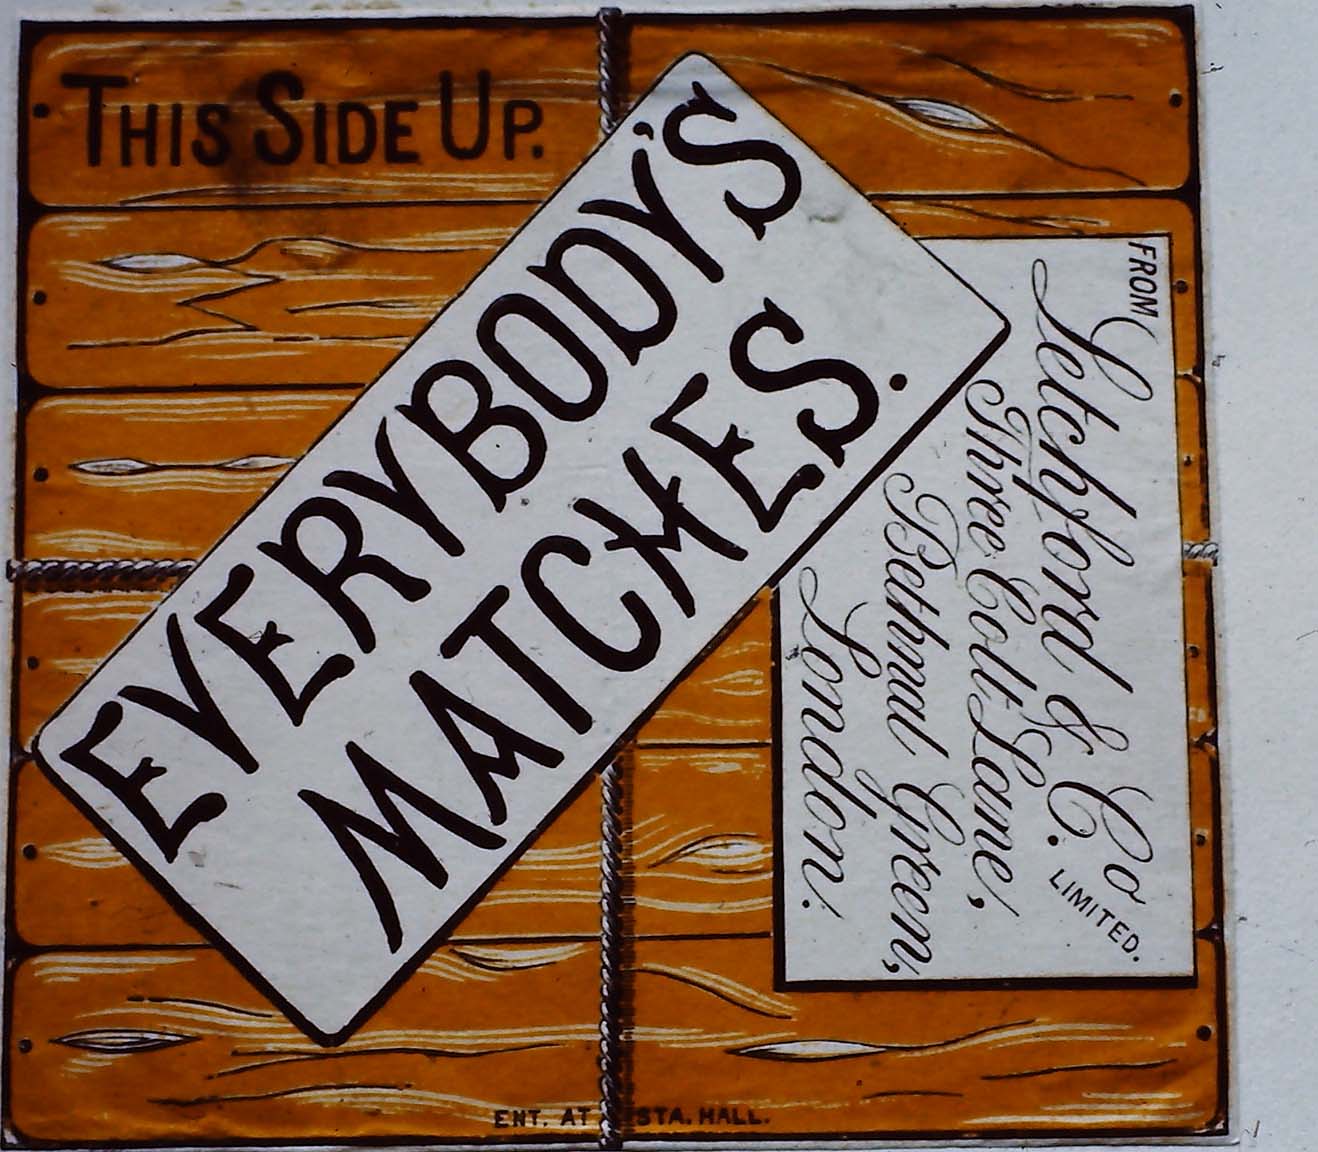 THIS SIDE UP.
EVERYBODY'S
MATCHES.
FROM
Letchford & Co
LIMITED.
Three Colt Lane,
Bethnal Green,
London.
ENT. AT STA. HALL.